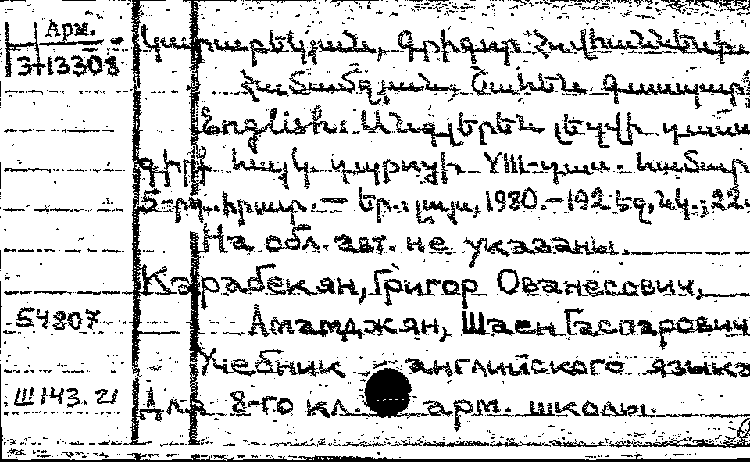 Арм.
3-13308
Կարաբեկյան, Գրիգոր Հովհաննեսի
Համամջյան, Շահեն Գասպարի
English: Անգլերեն լեզվի դասա
գիրք հայկ. դպրոցի VIII-դաս. համար
5-րդ հրատ. — Եր.: Լույս, 1980. — 192 էջ, նկ.; 22
На обл. авт. не указаны.
Карабекян, Григор Ованесович,
54807
Амамджян, Шаен Гаспарович
Учебник английского языка
Ш143.21
для 8-го кл. арм. школы.